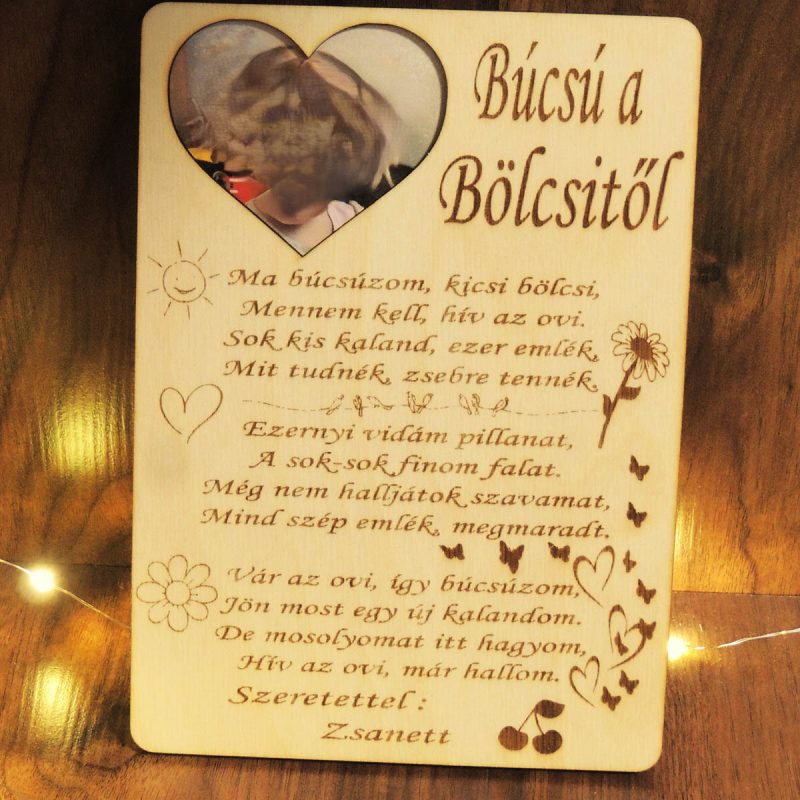 Búcsú a
Bölcsitől
Ma búcsúzom, kicsi bölcsi,
Mennem kell, hív az ovi.
Sok kis kaland, ezer emlék,
Mit tudnék, zsebre tennék.
Ezernyi vidám pillanat,
A sok-sok finom falat.
Még nem halljátok szavamat,
Mind szép emlék, megmaradt.
Vár az ovi, így búcsúzom,
Jön most egy új kalandom.
De mosolyomat itt hagyom,
Hív az ovi, már hallom.
Szeretettel :
Zsanett